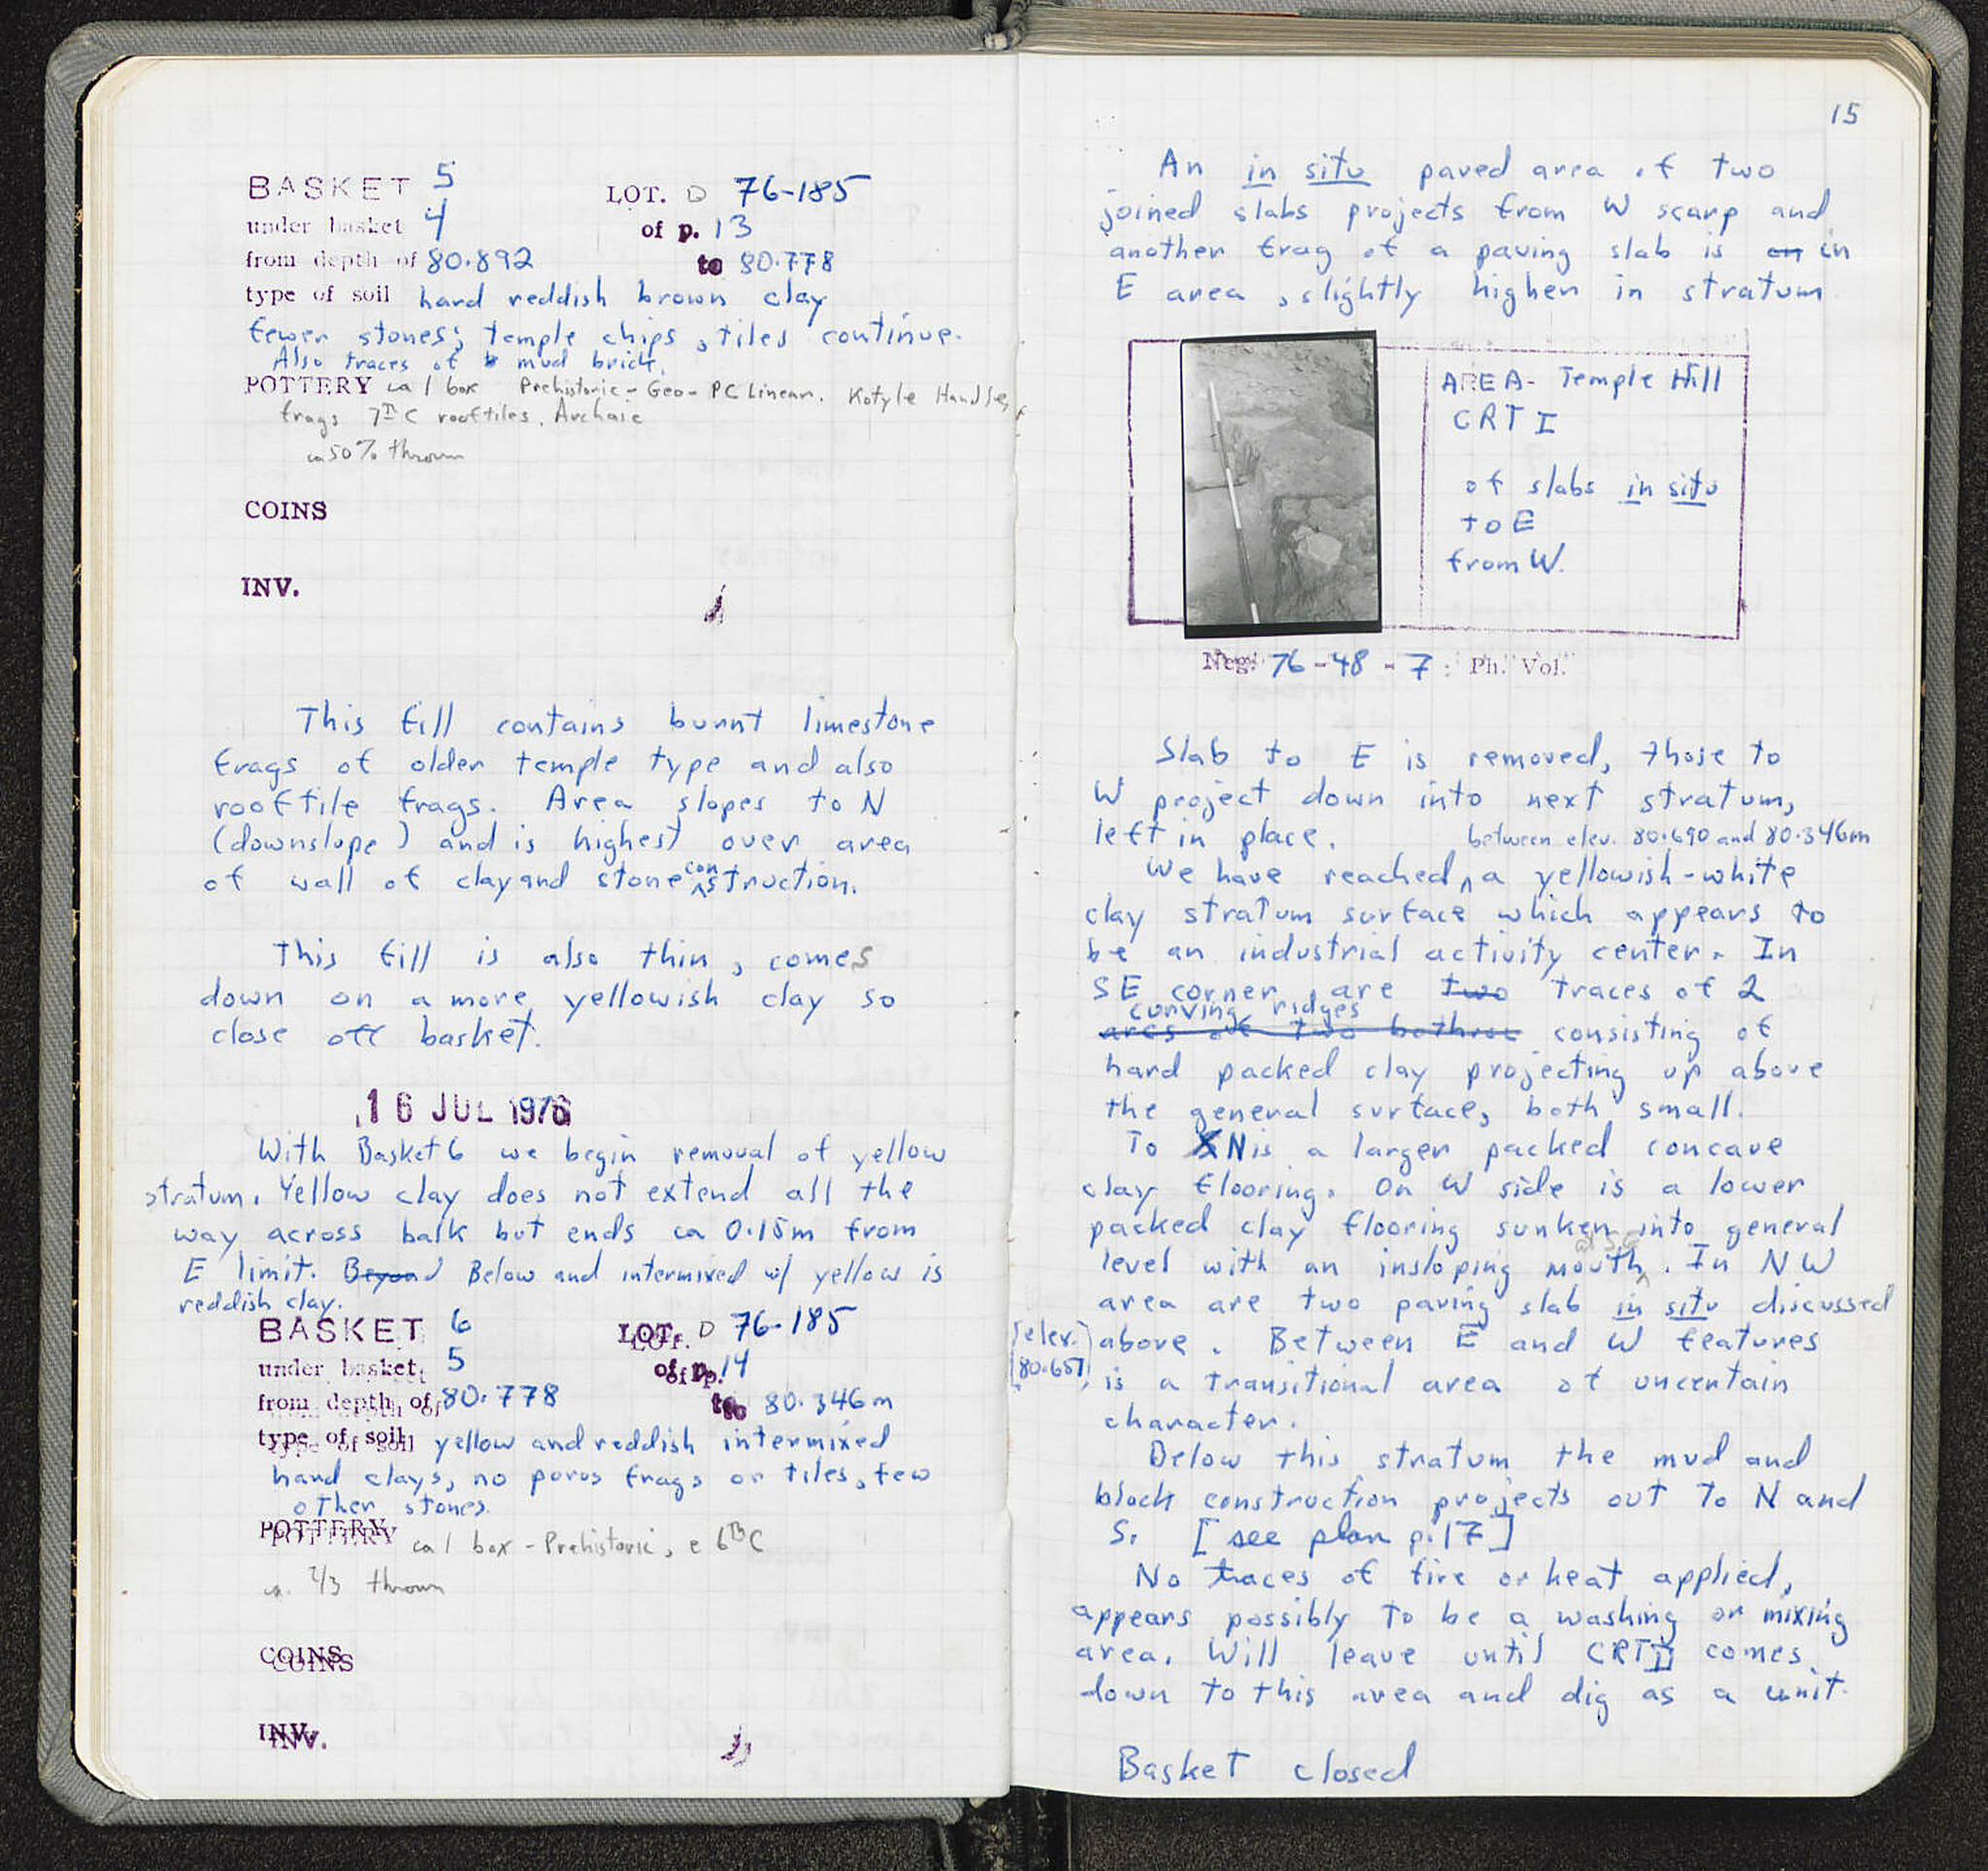 BASKET 5 LOT. D 76-185
under basket 4 of p. 13
from depth of 80.892 to 80.778
type of soil hard reddish brown clay
fewer stones; temple chips, tiles continue.
Also traces of mud brick.
POTTERY ca 1 box Prehistoric - Geo - PC Linear. Kotyle Handles,
frags 7th C rooftiles. Archaic
ca 50% thrown
COINS
INV.
This fill contains burnt limestone
frags of older temple type and also
rooftile frags. Area slopes to N
(downslope) and is highest over area
of wall of clay and stone construction.
This fill is also thin, comes
down on a more yellowish clay so
close off basket.
16 JUL 1976
With Basket 6 we begin removal of yellow
stratum. Yellow clay does not extend all the
way across balk but ends ca 0.15m from
E limit. Beyond Below and intermixed w/ yellow is
reddish clay.
BASKET 6 LOT. D 76-185
under basket 5 of p. 14
from depth of 80.778 to 80.346m
type of soil yellow and reddish intermixed
hard clays, no poros frags or tiles, few
other stones.
POTTERY ca 1 box - Prehistoric, e 6th C
ca. 2/3 thrown
COINS
INV.
15
An in situ paved area of two
joined slabs projects from W scarp and
another frag of a paving slab is on in
E area, slightly higher in stratum
AREA - Temple Hill
CRT I
of slabs in situ
to E
from W.
Neg. 76-48-7 Ph. Vol.
Slab to E is removed, those to
W project down into next stratum,
left in place.
between elev. 80.690 and 80.346m
We have reached a yellowish-white
clay stratum surface which appears to
be an industrial activity center. In
SE corner are two traces of 2
curving ridges
arcs of two bothroi consisting of
hard packed clay projecting up above
the general surface, both small.
To N is a larger packed concave
clay flooring. On W side is a lower
packed clay flooring sunken into general
level with an insloping mouth. In NW
area are two paving slab in situ discussed
[elev. 80.651] above. Between E and W features
is a transitional area of uncertain
character.
Below this stratum the mud and
block construction projects out to N and
S. [see plan p. 17]
No traces of fire or heat applied,
appears possibly to be a washing or mixing
area. Will leave until CRT II comes
down to this area and dig as a unit.
Basket closed